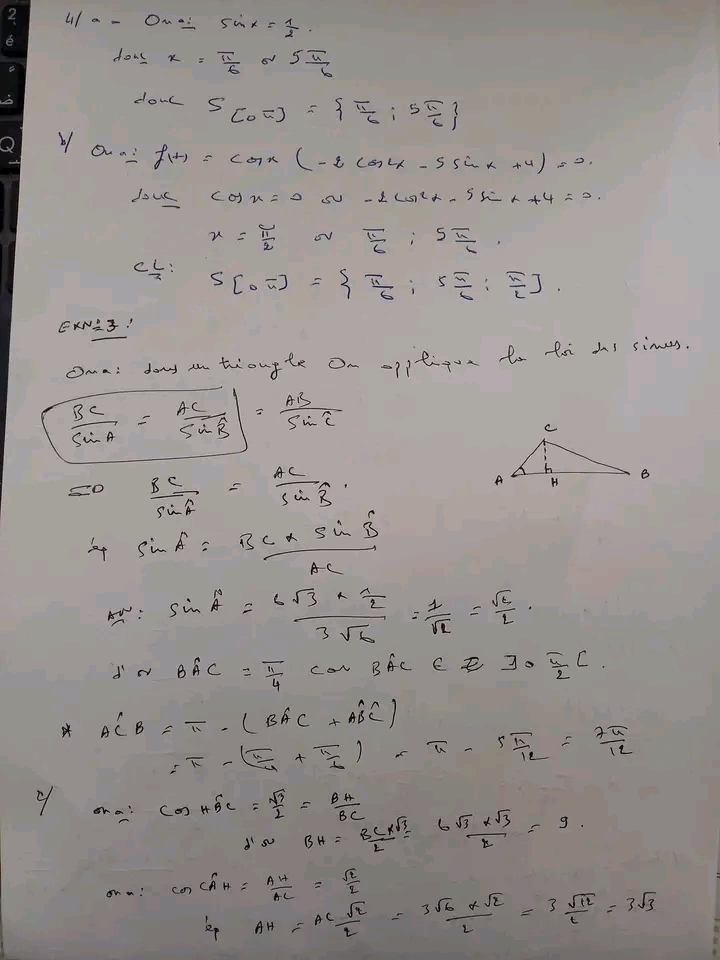 4/ a - Ona: sinx = 1/2.
donc x = π/6 ou 5π/6
donc S[0 π] = { π/6 ; 5π/6 }
b/ Ona: f(x) = cosx ( -2 cos²x - 5 sin x +4) = 0.
donc cos x = 0 ou -2 cos²x - 5 sin x +4 = 0.
x = π/2 ou π/6 ; 5π/6 .
CL: S[0 π] = { π/6 ; 5π/6 ; π/2 ] .
EXN:3:
Ona: dans un triangle On applique la loi des sinus.
BC/sinA = AC/sinB̂ = AB/sinĈ
BC/sinÂ = AC/sinB̂ .
C
A H B
sinÂ = BC x sinB̂ / AC
AN: sinÂ = 6√3 x 1/2 / 3√6 = 1/√2 = √2/2 .
d'où BÂC = π/4 car BÂC ∈ ]0 π/2 [.
* AĈB = π - ( BÂC + AB̂C )
= π - ( π/4 + π/6 ) = π - 5π/12 = 7π/12
c/ ona: cos HB̂C = √3/2 = BH/BC
d'où BH = BC x √3/2 = 6√3 x √3/2 = 9 .
ona: cos CÂH = AH/AC = √2/2
AH = AC √2/2 = 3√6 x √2/2 = 3 √12/2 = 3√3